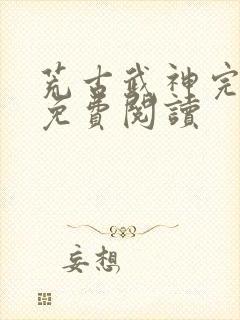 荒古武神完
免費閱讀
妄想